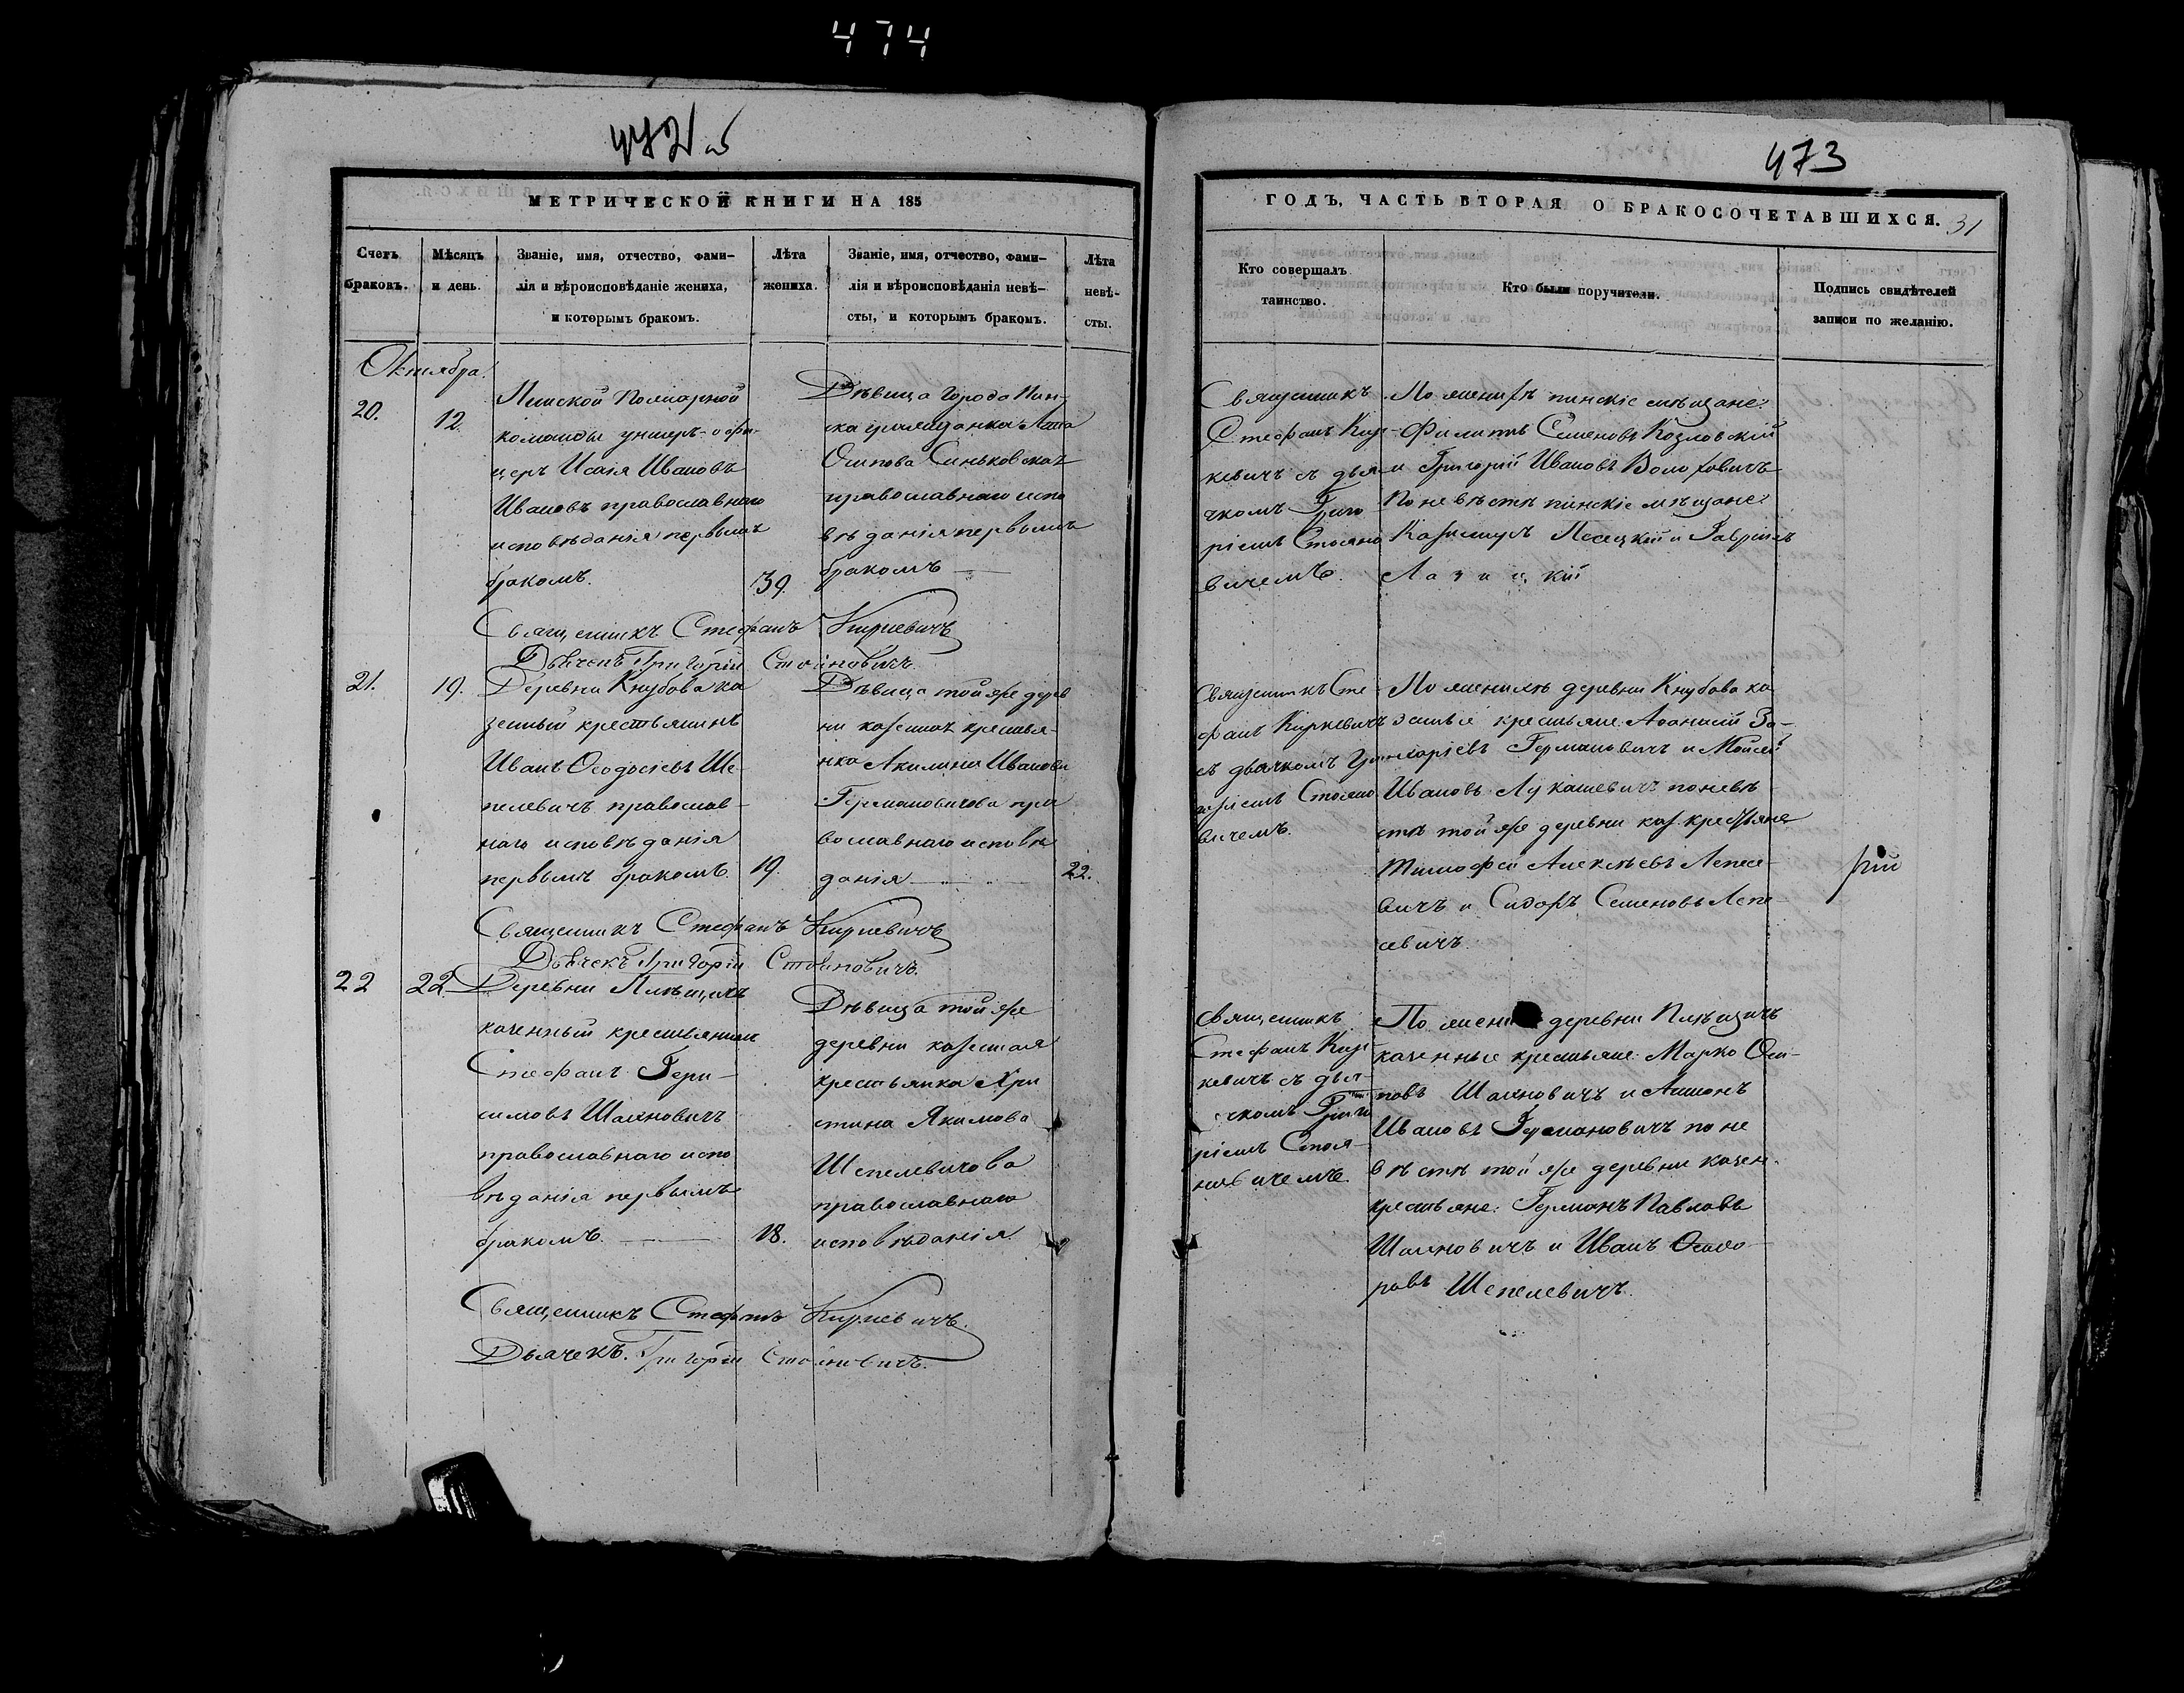 474
473
МЕТРИЧЕСКОЙ КНИГИ НА 185
ГОДЪ, ЧАСТЬ ВТОРАЯ О БРАКОСОЧЕТАВШИХСЯ.
31
Счетъ
браковъ.
Мѣсяцъ
и день.
Званіе, имя, отчество, фами-
лія и вѣроисповѣданіе жениха,
и которымъ бракомъ.
Лѣта
жениха.
Званіе, имя, отчество, фами-
лія и вѣроисповѣданія невѣ-
сты, и которымъ бракомъ.
Лѣта
невѣ-
сты.
Кто совершалъ
таинство.
Кто были поручители.
Подпись свидѣтелей
записи по желанію.
Октября
20.
12.
Пинской Пожарной
команды унтеръ-офи-
церъ Исаія Ивановъ
Ивановъ православнаго
исповѣданія первымъ
бракомъ.
39.
Дѣвица города Пин-
ска гражданка
Осипова Синьковская
православнаго испо
вѣданія первымъ
бракомъ
Священникъ
Стефанъ Кир-
кевичъ съ дья-
чкомъ Григо-
ріемъ Стояно
вичемъ.
По женихѣ пинскіе мѣщане:
Филиппъ Семеновъ Козловскій
и Григорій Ивановъ Волоховичъ
По невѣстѣ пинскіе мѣщане:
Казимиръ Песецкій и Гавріилъ
Лазицкій
Священникъ Стефанъ Киркевичъ
Дьячекъ Григорій Стояновичъ.
21.
19.
Деревни Кнубова ка
зенный крестьянинъ
Иванъ Ѳеодосіевъ Ше-
пелевичъ православ-
наго исповѣданія
первымъ бракомъ.
19.
Дѣвица той же дерев
ни казенная крестья-
нка Акилина Иванова
Германовичова пра
вославнаго исповѣ
данія
22.
Священникъ Сте
фанъ Киркевичъ
съ дьячкомъ Гри
горіемъ Стояно
вичемъ.
По женихѣ деревни Кнубова ка
зенные крестьяне: Аѳанасій За-
харіевъ Германовичъ и Мойсей
Ивановъ Лукашевичъ по невѣ
стѣ той же деревни каз. крестьяне
Тимофей Алексѣевъ Лепесе-
вичъ и Сидоръ Семеновъ Лепе
севичъ.
рій
Священникъ Стефанъ Киркевичъ
Дьячекъ Григорій Стояновичъ.
22
22.
Деревни Плещицъ
казенный крестьянинъ
Стефанъ Гера-
симовъ Шоломовичъ
православнаго испо
вѣданія первымъ
бракомъ.
18.
Дѣвица той же
деревни казенная
крестьянка Хри
стина Якимова
Шепелевичова
православнаго
исповѣданія
Священникъ
Стефанъ Кир-
кевичъ съ дья-
чкомъ Григо
ріемъ Стоя-
новичемъ.
По жених деревни Плещицъ
казенные крестьяне: Марко Оси-
повъ и Антонъ
Ивановъ Германовичъ по не
вѣстѣ той же деревни казен.
крестьяне: Германъ Павловъ
и Иванъ Ѳеодо-
ровъ Шепелевичъ.
Священникъ Стефанъ Киркевичъ.
Дьячекъ. Григорій Стояновичъ.